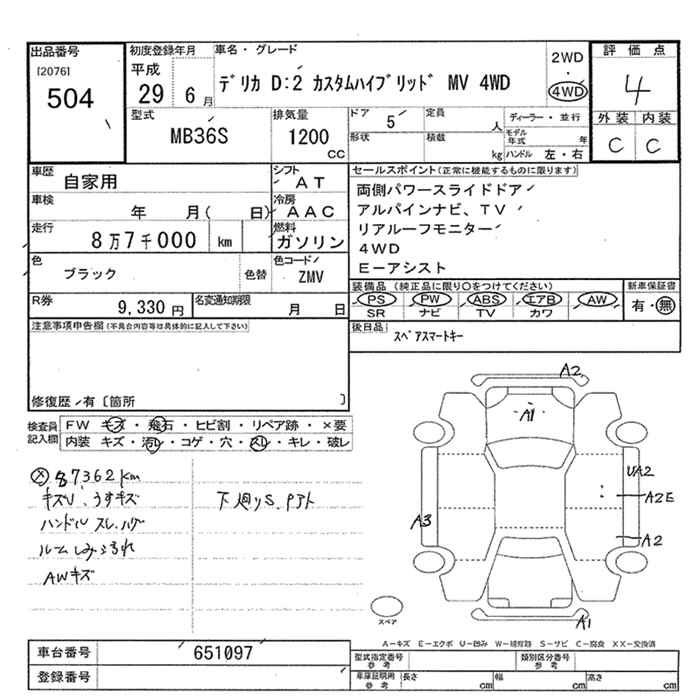 出品番号
[2076]
504
初度登録年月
平成
29 6月
車名・グレード
デリカ D:2 カスタムハイブリッド MV 4WD
2WD
・
4WD
評価点
4
外装 内装
C C
型式
MB36S
排気量
1200
CC
ドア
5
形状
定員
人
積載
kg
ディーラー・並行
モデル年式 年
ハンドル 左・右
車歴
自家用
シフト
AT
車検
年 月( 日)
冷房
AAC
走行
8万7千000 km
燃料
ガソリン
色
ブラック
色替
色コード
ZMV
R券
9,330円
名変通知期限
月 日
セールスポイント(正常に機能するものに限ります)
両側パワースライドドア
アルパインナビ、TV
リアルーフモニター
4WD
E-アシスト
装備品(純正品に限り○をつけてください)
PS PW ABS エアB AW
SR ナビ TV カワ
新車保証書
有・無
後日品
スペアスマートキー
注意事項申告欄(不具合内容等は具体的に記入して下さい)
修復歴・有〔箇所 〕
検査員記入欄
FW キズ・飛石・ヒビ割・リペア跡・×要
内装 キズ・汚レ・コゲ・穴・スレ・キレ・破レ
87362km
キズU、うすキズ
ハンドル スレ、ハゲ
ルームしみ汚れ
AWキズ
下廻りS、Pアト
A2
A1
UA2
A2E
A3
A2
A1
スペア
A-キズ E-エクボ U-凹み W-補修跡 S-サビ C-腐食 XX-交換済
車台番号
651097
登録番号
型式指定番号
参考
類別区分番号
参考
車庫証明用
参考
長さ cm 幅 cm 高さ cm